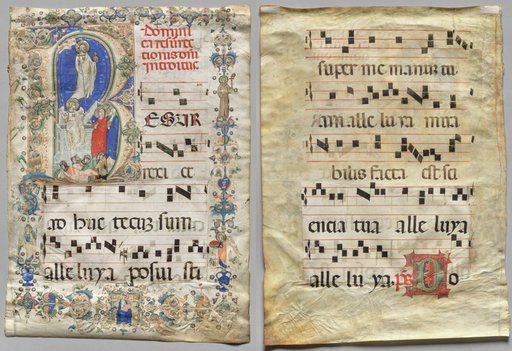 Domini
ca resurre
ctionis dni
introitus
R ESUR
rexi et
ad huc tecuz sum
alle luya posui sti
super me manuz tu
am alle luya mira
bilis facta est sci
encia tua alle luya
alle lu ya. ps Do